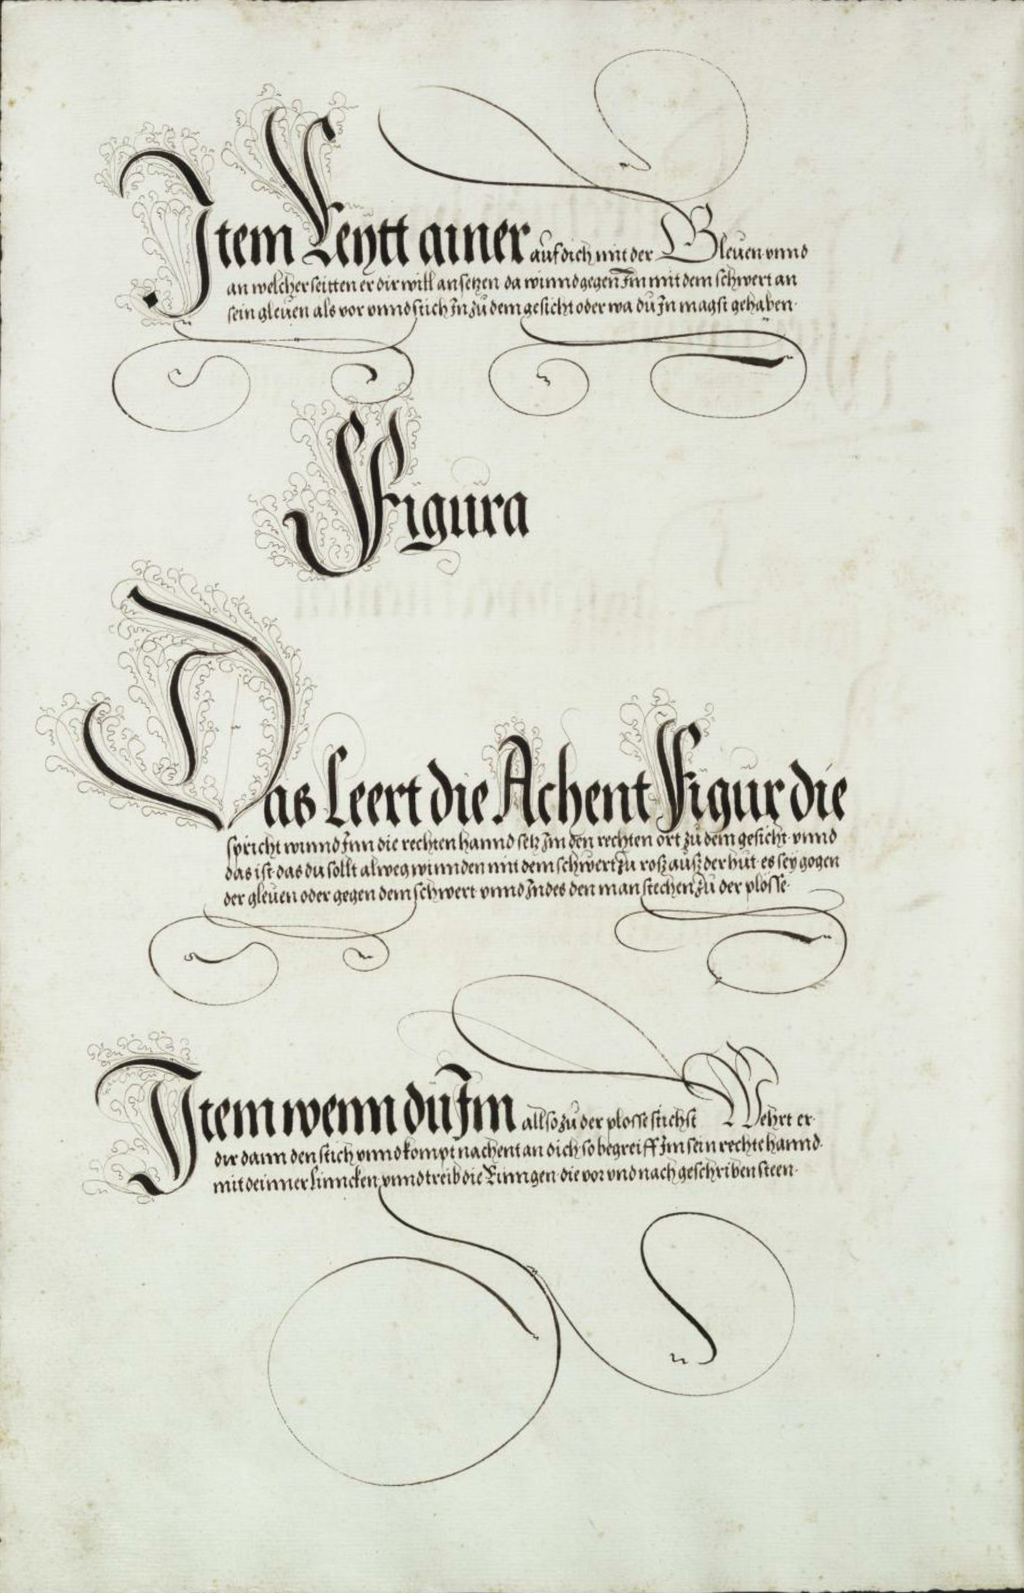 Item Reytt ainer auf dich mit der Gleuen vnnd
an welcher seitten er dir will ansetzen da winnd gegen Im mit dem schwert an
sein gleuen als vor vnnd stich In zu dem gesicht oder wa du In magst gehaben
Figura
Das Leert die Achent Figur die
spricht winnd Inn die rechten hannd setz Im den rechten ort zu dem gesicht vnnd
das ist das du sollt alweg winnden mit dem schwert zu roß auß der hut es sey gogen
der gleuen oder gegen dem schwert vnnd Indes den man stechen zu der plosse
Item wenn du Im allso zu der plosse stichst Wehrt er
dir dann den stich vnnd kompt nachent an dich so begreiff Im sein rechte hannd
mit deinner linncken vnnd treib die Rinngen die vor vnd nach geschriben steen